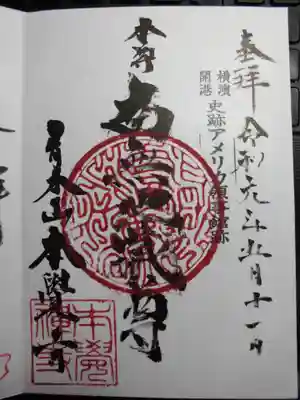 奉拝
令和元年五月十一日
横濱
開港
史跡アメリカ領事館跡
本尊
南無地蔵尊
青木山本覺寺
本覺